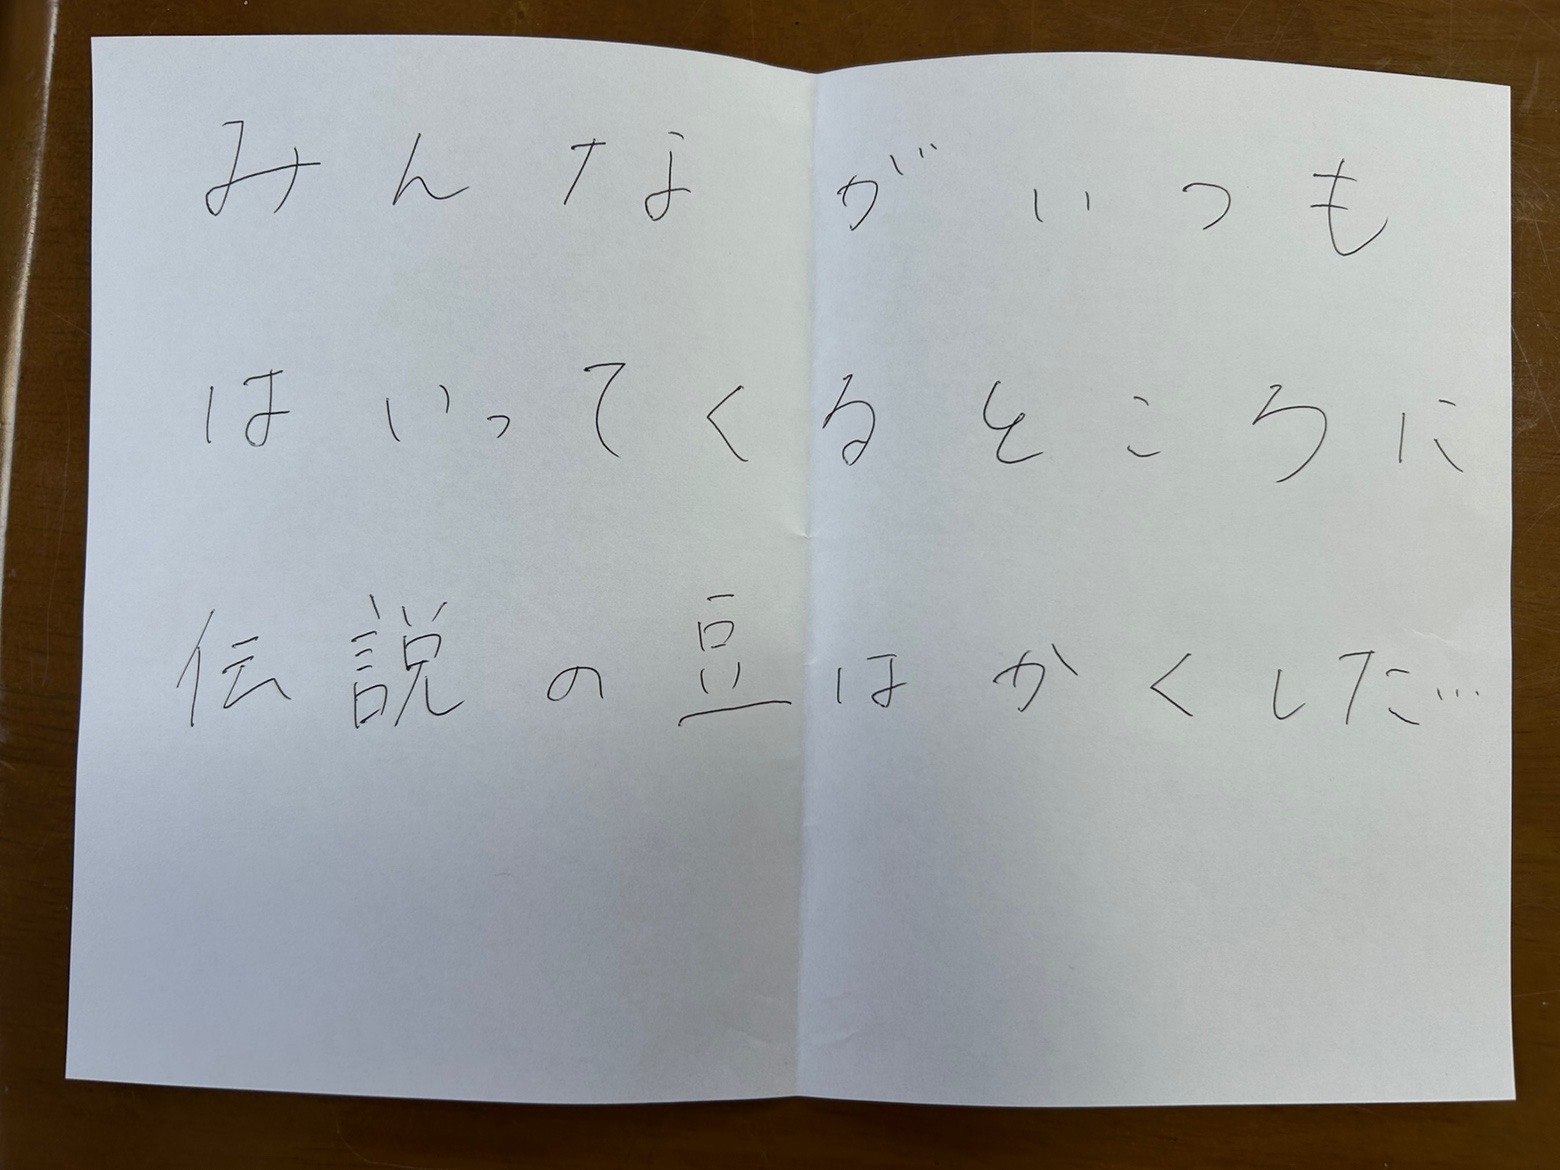 みんながいつも
はいってくるところに
伝説の豆はかくした…